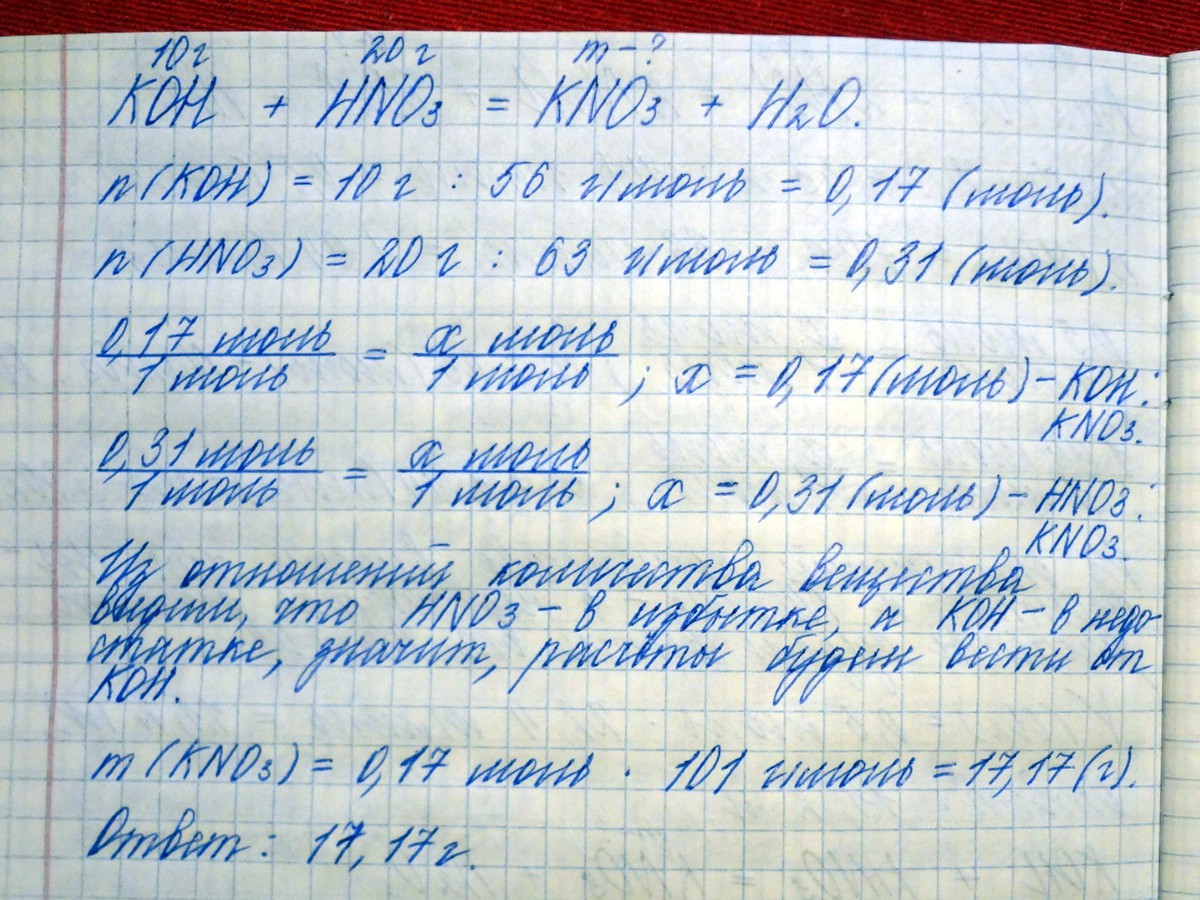 10г 20г m-?
KOH + HNO3 = KNO3 + H2O.
n(KOH) = 10г : 56 г/моль = 0,17 (моль).
n(HNO3) = 20г : 63 г/моль = 0,31 (моль).
0,17 моль / 1 моль = x моль / 1 моль ; x = 0,17(моль) - KOH:
KNO3.
0,31 моль / 1 моль = x моль / 1 моль ; x = 0,31(моль) - HNO3:
KNO3.
Из отношений количества вещества
видим, что HNO3 - в избытке, а KOH - в недо-
статке, значит, расчёты будем вести от
KOH.
m(KNO3) = 0,17 моль · 101 г/моль = 17,17(г).
Ответ: 17,17г.